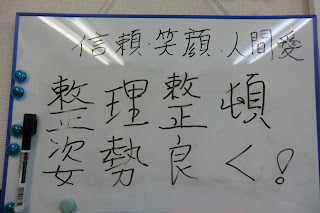 信頼・笑顔・人間愛
整理整頓
姿勢良く!